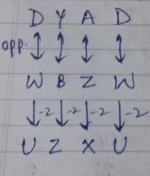 D Y A D
opp.
W B Z W
-2 -2 -2 -2
U Z X U